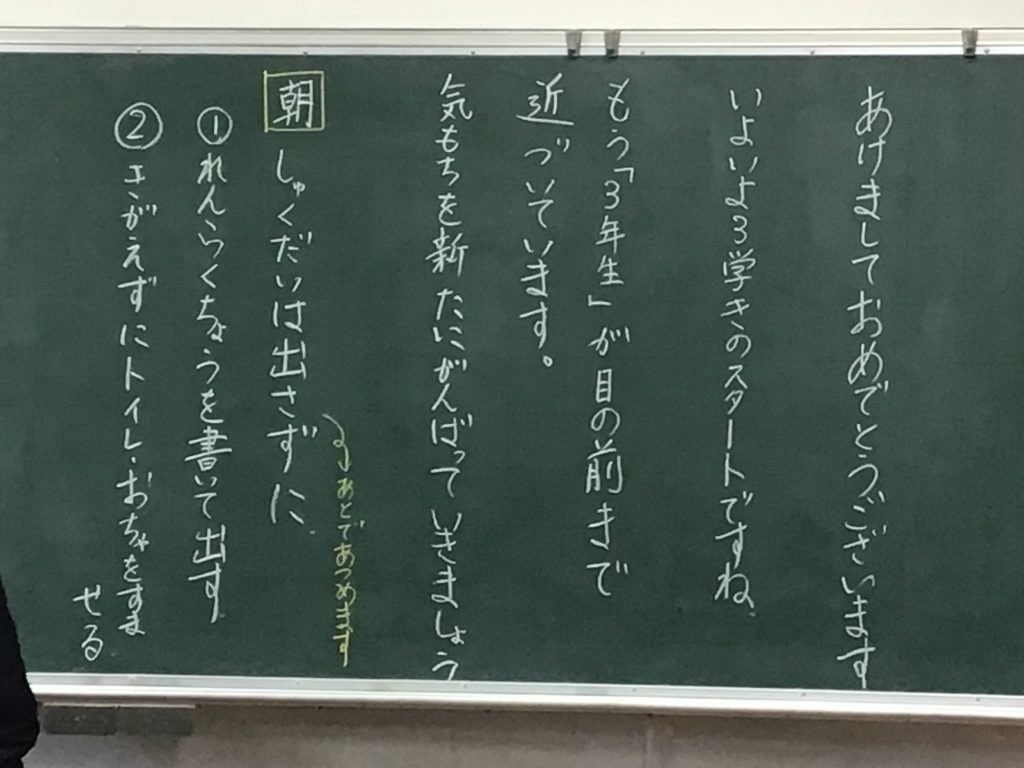 あけましておめでとうございます
いよいよ3学きのスタートですね
もう「3年生」が目の前まで
近づいています。
気もちを新たにがんばっていきましょう
あとであつめます
朝 しゅくだいは出さずに
① れんらくちょうを書いて出す
② きがえずにトイレ・おちゃをすま
せる